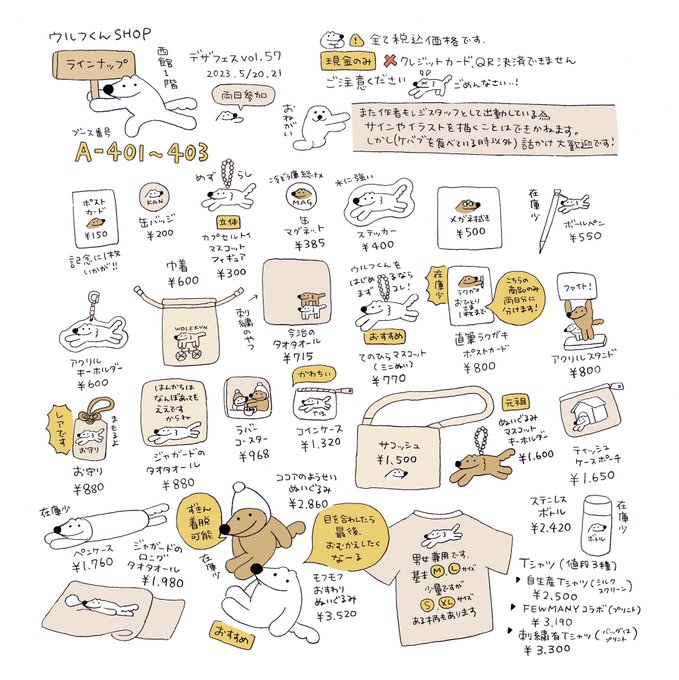 ウルフくんSHOP
ラインナップ
西館1階
デザフェスvol.57
2023.5/20.21
両日参加
ブース番号
A-401~403
⚠全て税込価格です.
現金のみ ❌クレジットカード、QR決済できません
ご注意ください
ごめんなさい..!
おねがい
また作者もレジスタッフとして出動している為
サインやイラストを描くことはできかねます。
しかし(ケバブを食べている時以外)話かけ大歓迎です!
ポスト
カード
¥150
記念に1枚
いかが!!
KAN
缶バッジ
¥200
めずらし
立体
カプセルトイ
マスコット
フィギュア
¥300
冷ぞう庫総々×
MAG
缶
マグネット
¥385
水に強い
ステッカー
¥400
メガネ拭き
¥500
在庫少
ボールペン
¥550
アクリル
キーホルダー
¥600
巾着
¥600
WOLFKUN
刺繍のやつ
今治の
タオタオール
¥715
ウルフくんを
はじめるなら
まずコレ!
おすすめ
てのひらマスコット
(ミニぬい)
¥770
在庫少
ラクガキ
おひとり
1枚まで
こちらの
商品のみ
両日分に
分けます!
直筆ラクガキ
ポストカード
¥800
ファイト!
アクリルスタンド
¥800
レアです
まもるよ
お守り
お守り
¥880
はんかちは
なんぼあっても
ええです
からね
ジャガードの
タオタオール
¥880
ラバー
コースター
¥968
かわちい
コインケース
¥1.320
サコッシュ
¥1.500
元祖
ぬいぐるみ
マスコット
キーホルダー
¥1.600
ティッシュ
ケースポーチ
¥1.650
在庫少
ペンケース
¥1.760
ジャガードの
ロング
タオタオール
¥1.980
ココアのようせい
ぬいぐるみ
¥2.860
ずきん
着脱
可能
在庫少
目を合わしたら
最後、
おむかえしたく
な〜る
モフモフ
おすわり
ぬいぐるみ
¥3.520
おすすめ
男女兼用です.
基本M、Lサイズ
少量ですが
S XLサイズ
ある柄もあります
ステンレス
ボトル
¥2.420
ボトル
在庫少
Tシャツ(値段3種)
▶自生産Tシャツ(シルクスクリーン)
¥2.500
▶FEWMANYコラボ(プリント)
¥3.190
▶刺繍有Tシャツ(バックはプリント)
¥3.300